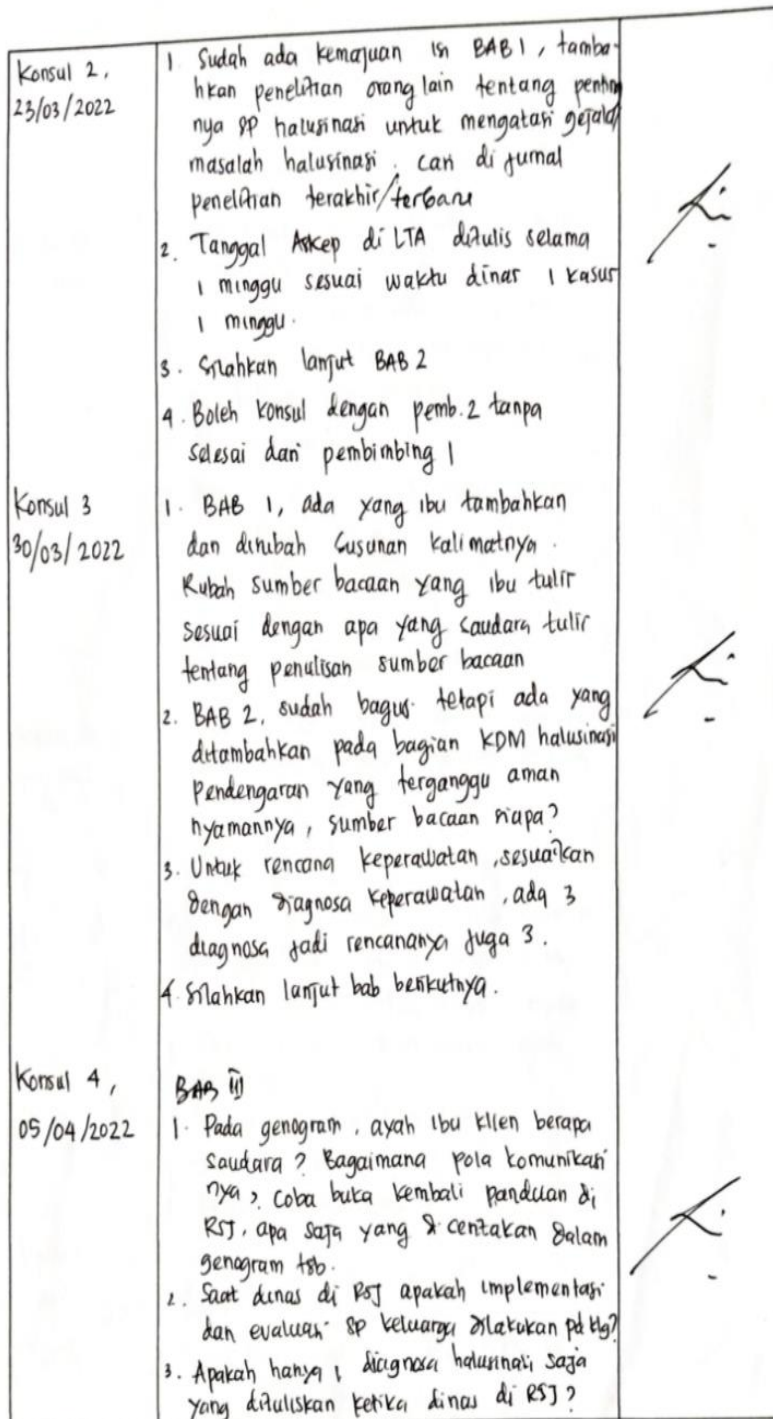 Konsul 2,
23/03/2022
1. Sudah ada kemajuan isi BAB 1, tamba-
hkan penelitian orang lain tentang penting
nya SP halusinasi untuk mengatasi gejala/
masalah halusinasi. cari di jurnal
penelitian terakhir/terbaru
2. Tanggal Askep di LTA ditulis selama
1 minggu sesuai waktu dinas 1 kasus
1 minggu.
3. Silahkan lanjut BAB 2
4. Boleh konsul dengan pemb. 2 tanpa
selesai dari pembimbing 1
Konsul 3
30/03/2022
1. BAB 1, ada yang ibu tambahkan
dan dirubah susunan kalimatnya.
Rubah sumber bacaan yang ibu tulis
sesuai dengan apa yang saudara tulis
tentang penulisan sumber bacaan
2. BAB 2, sudah bagus tetapi ada yang
ditambahkan pada bagian KDM halusinasi
pendengaran yang terganggu aman
nyamannya, sumber bacaan siapa?
3. Untuk rencana keperawatan, sesuaikan
dengan diagnosa keperawatan, ada 3
diagnosa jadi rencananya juga 3.
4. Silahkan lanjut bab berikutnya.
Konsul 4,
05/04/2022
BAB III
1. Pada genogram, ayah ibu klien berapa
saudara? Bagaimana pola komunikasi
nya, coba buka kembali panduan di
RSJ, apa saja yang di ceritakan dalam
genogram tsb.
2. Saat dinas di RSJ apakah implementasi
dan evaluasi SP keluarga dilakukan pd klg?
3. Apakah hanya 1 diagnosa halusinasi saja
yang dituliskan ketika dinas di RSJ?